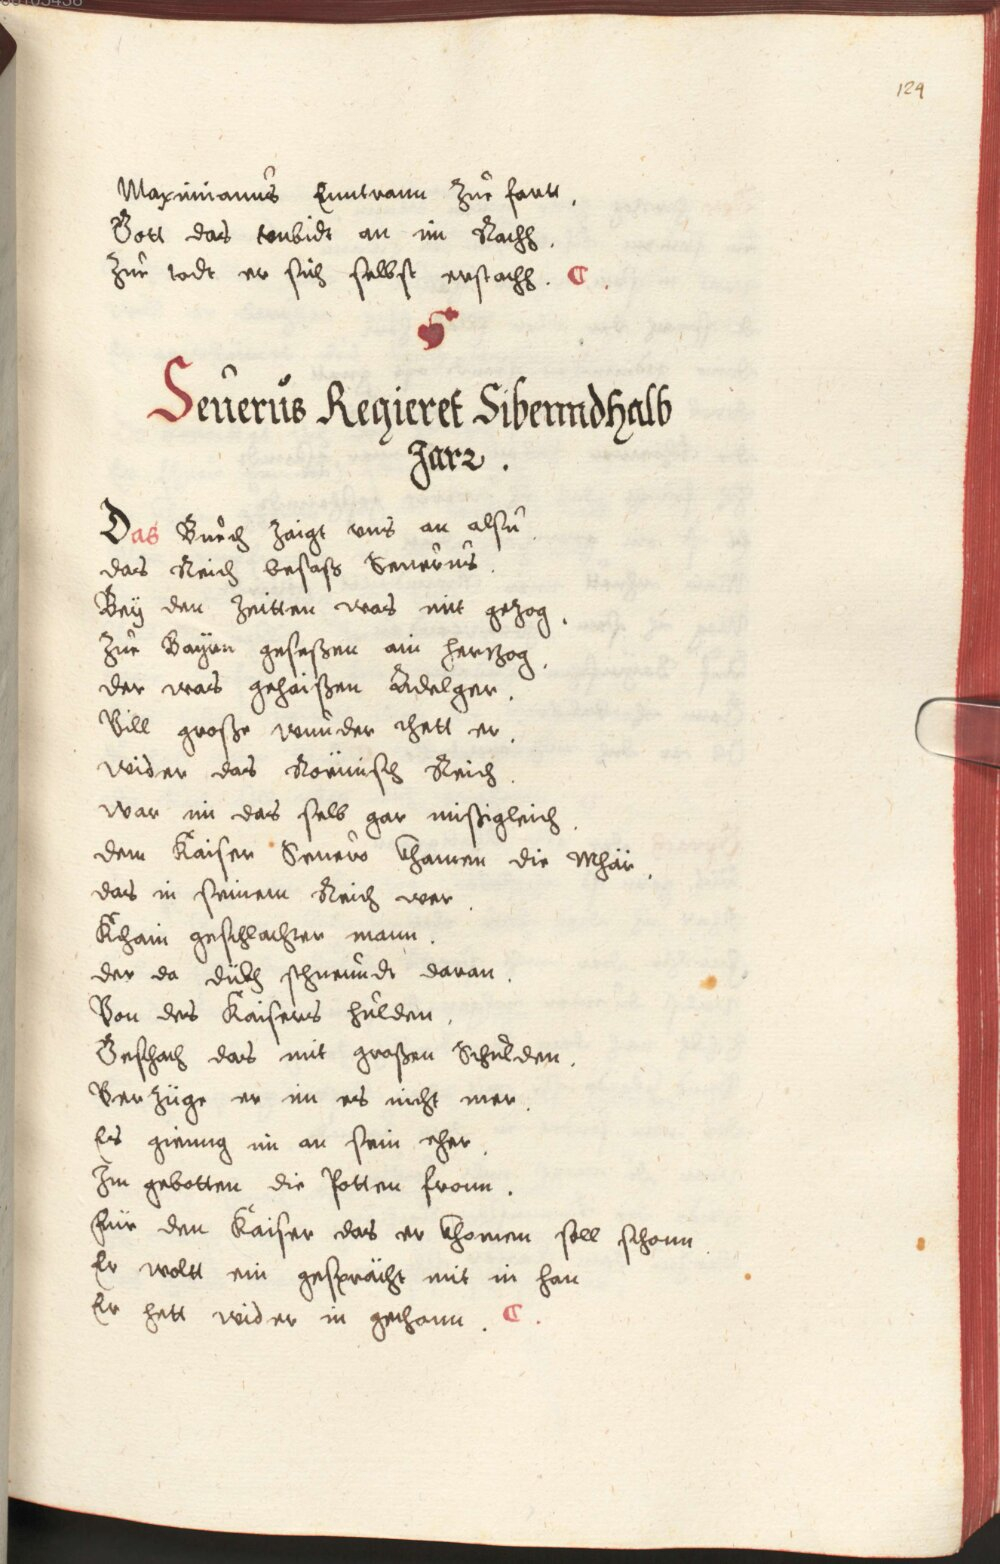 00105456
124
Maximianus Enntrann zue fartt,
Gott dasenbidt an im Rachh.
Zue todt er sich selbst erstachh.
Seuerus Regieret Sibenndhalb
Jarz.
Das Buech zaigt vns an alsu
das Reich besass Seuerus.
Bey den Zeitten was mit gezog,
Zue Bayrn gesessen ain hertzog,
der was gehaissen Adelger.
Vill grosse wunder thett er.
wider das Roemisch Reich.
war im das selb gar missigleich.
dem Kaiser Seuero khamen die Mhär,
das in seinem Reich wer.
Khain geschlachter mann.
der da düch schneundt daran.
Von des Kaisers hulden,
Geschach das mit grossen Schulden.
Verzüge er im es nicht mer.
Es gienng im an sein eher.
Im gebotten die Potten fronn.
Für den Kaiser das er khomen soll schonn.
Er woltt ein gesprächt mit in han
Er hett wider in gethann.